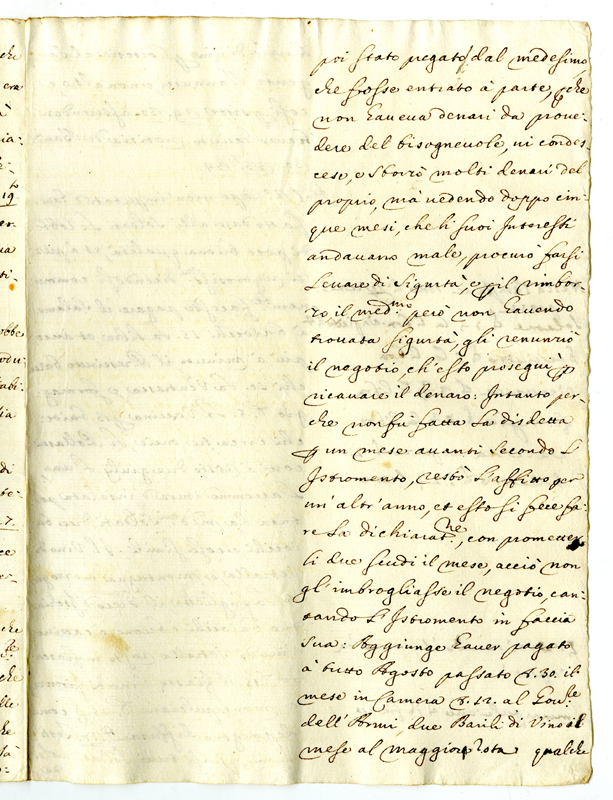 poi stato pregato dal medesimo,
che fosse entrato à parte, p che
non haveva denari da prove:
dere del bisognevole, vi condes:
cese, e sborsò molti denari del
proprio, mà vedendo doppo cin:
que mesi, che li suoi Interessi
andavano male, procurò farsi
levare di Sigurtà, e p il rimbor:
so il med.mo però non havendo
trovata sigurtà, gli renunziò
il negotio, ch'esso proseguì p
ricavare il denaro: Intanto per:
che non fù fatta la disdetta
p un mese avanti secondo l'
Istromento, restò l'affitto per
un'altr'anno, et esso si fece fa:
re la dichiarat.ne, con prometter
li due scudi il mese, acciò non
gl'imbrogliasse il negotio, can:
tando l'Istromento in faccia
sua: Aggiunge haver pagato
à tutto Agosto passato 30. il
mese in Camera 12. al Gov.
dell'Armi, due Barili di Vino il
mese al maggior qualche
che
era
à
ia:
19.
to
er:
ua
ti:
obbe
odu:
abi:
lia
di
7.
che
che
elle
che